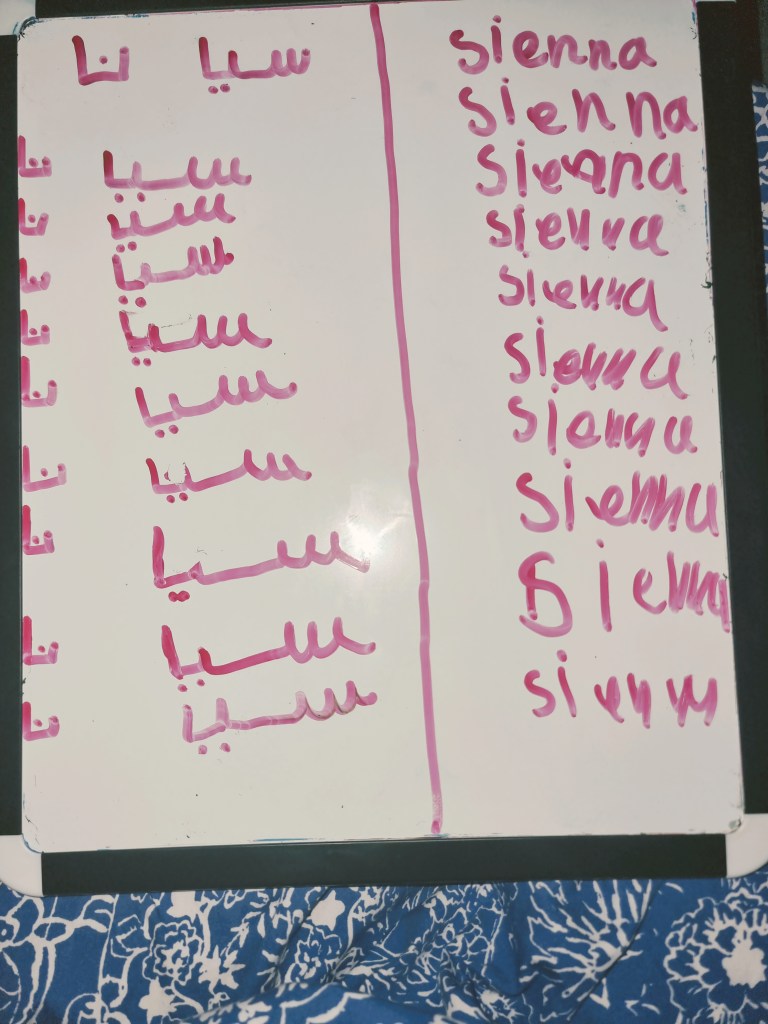 سيا نا
سيا نا
سيا نا
سيا نا
سيا نا
سيا نا
سيا نا
سيا نا
سيا نا
سيا نا
sienna
sienna
sienna
sienna
sienna
sienna
sienna
sienna
Sienna